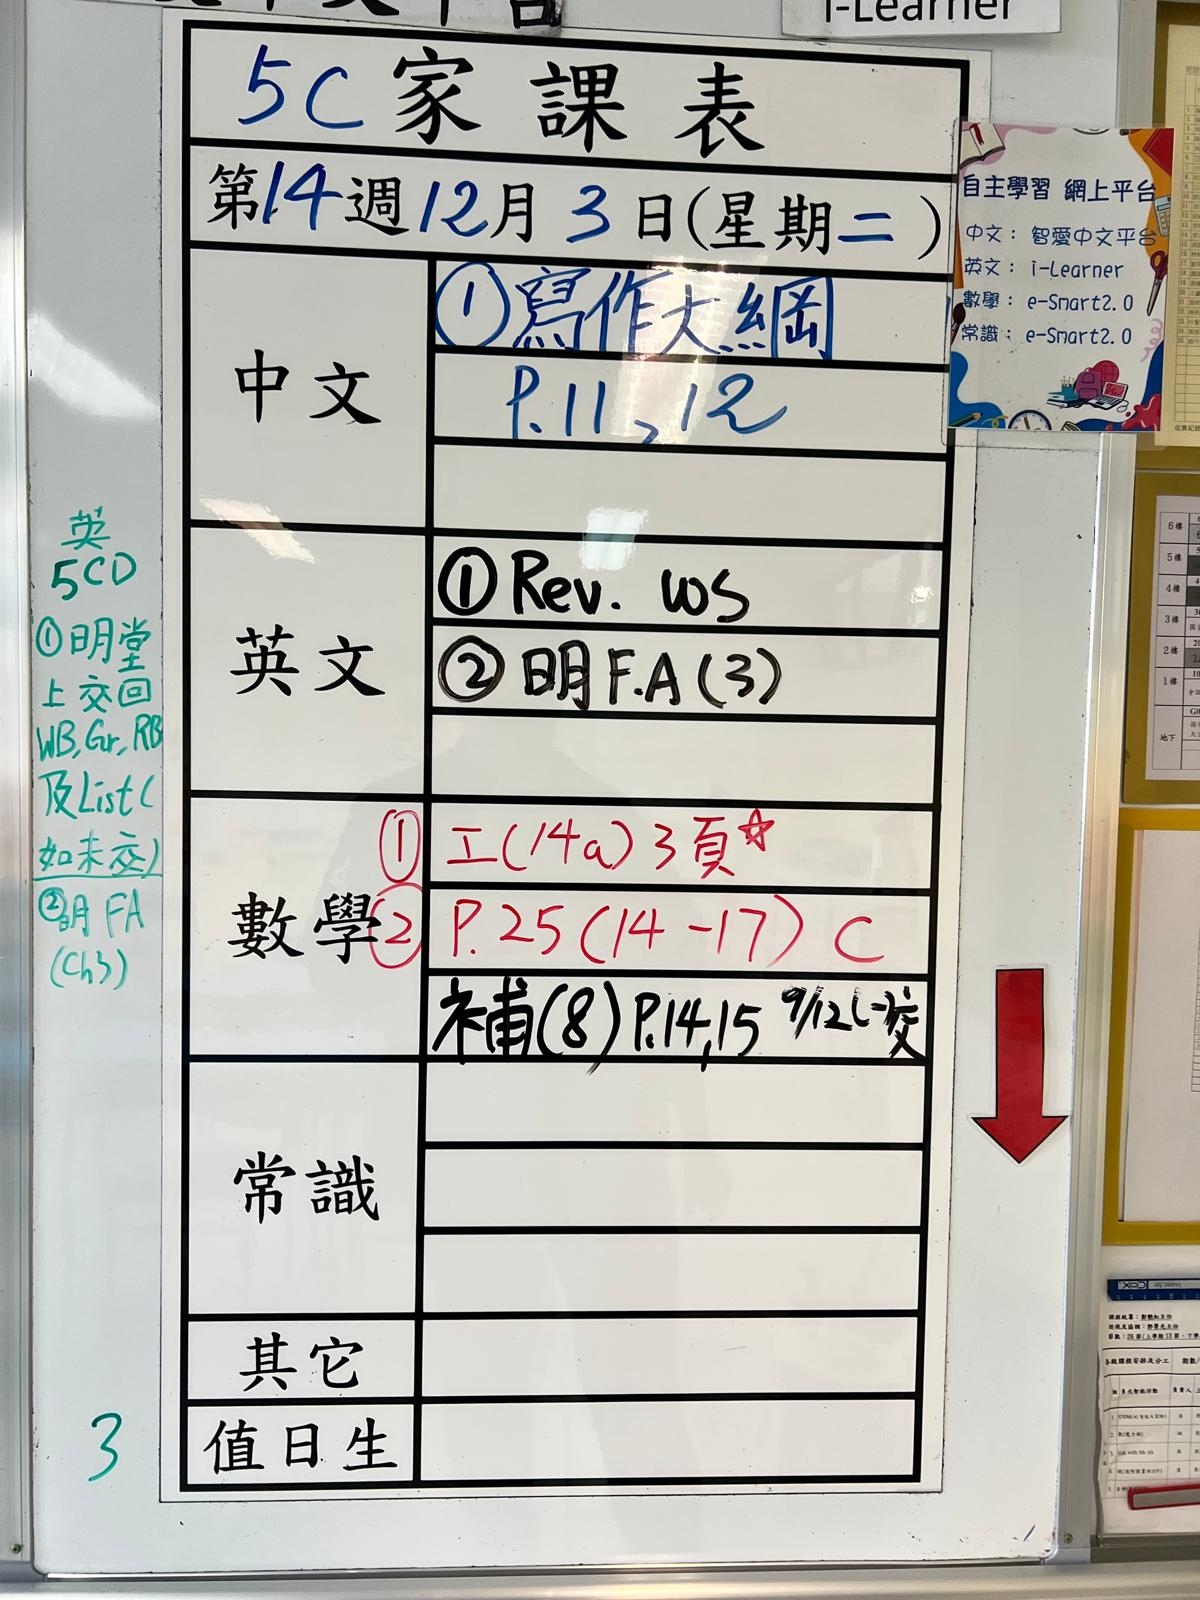 i-Learner
5C家課表
第14週12月3日(星期二)
中文
①寫作大綱
P.11,12
英文
①Rev. WS
②明F.A(3)
數學
①工(14a)3頁☆
②P.25(14-17) C
補(8)P.14,15 9/12(一)交
常識
其它
值日生
英
5CD
①明堂
上交回
WB,Gr,RB
及List(
如未交)
②明FA
(Ch3)
3
自主學習 網上平台
中文：智愛中文平台
英文：i-Learner
數學：e-Smart2.0
常識：e-Smart2.0
6樓
5樓
4樓
3樓
2樓
1樓
地下